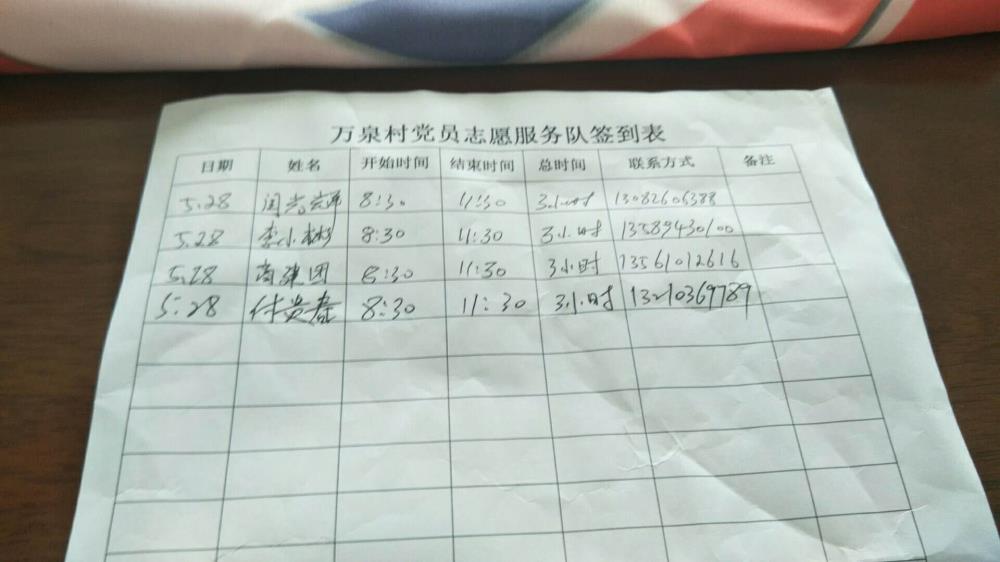 万泉村党员志愿服务队签到表
日期 姓名 开始时间 结束时间 总时间 联系方式 备注
5.28 8:30 11:30 3小时 13082606388
5.28 李小彬 8:30 11:30 3小时 13589430100
5.28 商建团 8:30 11:30 3小时 13561012616
5.28 付贵春 8:30 11:30 3小时 13210369789